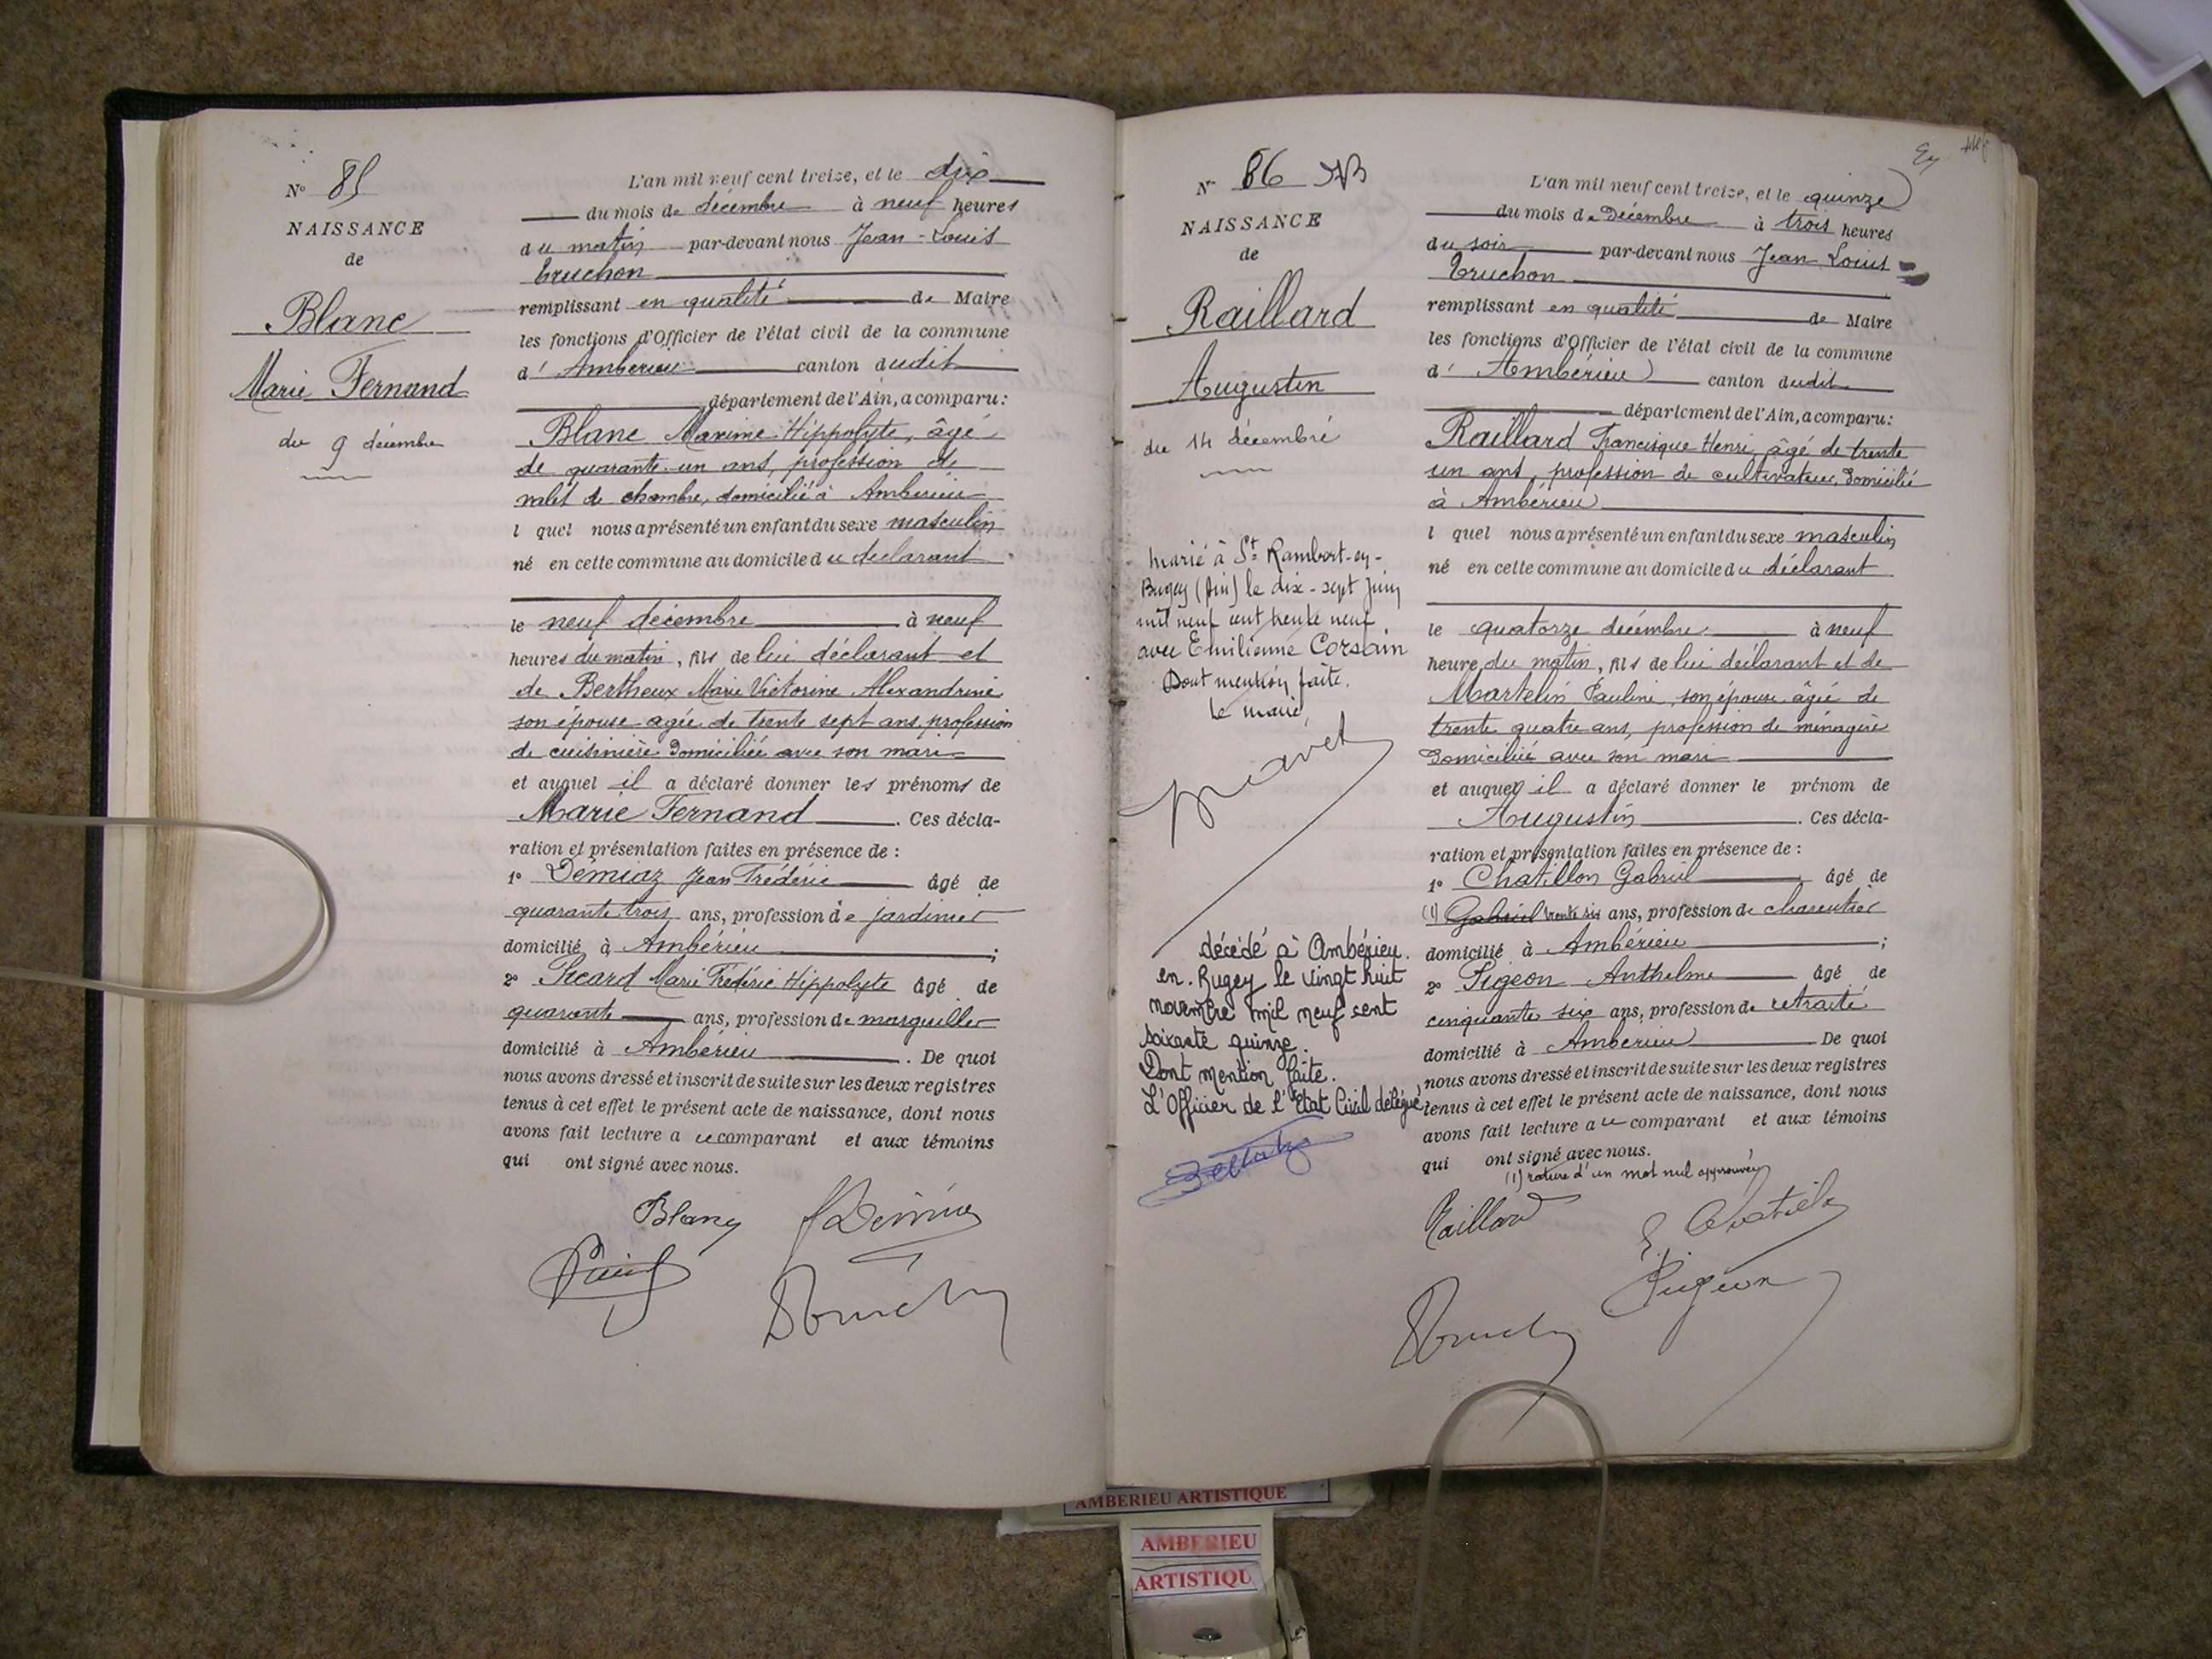 N° 85
NAISSANCE
de
Blanc
Marie Fernand
du 9 décembre
L'an mil neuf cent treize, et le dix
du mois de décembre à neuf heures
du matin par-devant nous Jean-Louis
Truchon
remplissant en qualité de Maire
les fonctions d'Officier de l'état civil de la commune
d'Ambérieu canton dudit
département de l'Ain, a comparu:
Blanc Maxime Hippolyte, âgé
de quarante un ans, profession de
valet de chambre, domicilié à Ambérieu
l quel nous a présenté un enfant du sexe masculin
né en cette commune au domicile du déclarant
le neuf décembre à neuf
heures du matin, fils de lui déclarant et
de Bertheux Marie Victorine Alexandrine
son épouse agée de trente sept ans, profession
de cuisinière domiciliée avec son mari
et auquel il a déclaré donner les prénoms de
Marie Fernand. Ces décla-
ration et présentation faites en présence de :
1° Démiaz Jean Frédéric âgé de
quarante trois ans, profession de jardinier
domicilié à Ambérieu ;
2° Sicard Marie Frédéric Hippolyte âgé de
quarante ans, profession de marguiller
domicilié à Ambérieu. De quoi
nous avons dressé et inscrit de suite sur les deux registres
tenus à cet effet le présent acte de naissance, dont nous
avons fait lecture au comparant et aux témoins
qui ont signé avec nous.
Blanc
N° 86
NAISSANCE
de
Raillard
Augustin
du 14 décembre
marié à St Rambert-en-
Bugey (Ain) le dix-sept juin
mil neuf cent trente neuf
avec Emilienne Corsain
Dont mention faite.
le maire,
décédé à Ambérieu.
en. Bugey le vingt huit
novembre mil neuf cent
soixante quinze.
Dont mention faite.
L'Officier de l'Etat Civil délégué
L'an mil neuf cent treize, et le quinze
du mois de Décembre à trois heures
du soir par-devant nous Jean Louis
Truchon
remplissant en qualité de Maire
les fonctions d'Officier de l'état civil de la commune
d'Ambérieu canton dudit
département de l'Ain, a comparu:
Raillard Francisque Henri, âgé de trente
un ans, profession de cultivateur, domicilié
à Ambérieu
l quel nous a présenté un enfant du sexe masculin
né en cette commune au domicile du déclarant
le quatorze décembre à neuf
heure du matin, fils de lui déclarant et de
Martelin Pauline, son épouse âgée de
trente quatre ans, profession de ménagère
domiciliée avec son mari
et auquel il a déclaré donner le prénom de
Augustin. Ces décla-
ration et présentation faites en présence de :
1° Chatillon Gabriel âgé de
(1) Gabriel trente six ans, profession de charcutier
domicilié à Ambérieu ;
2° Pigeon Anthelme âgé de
cinquante six ans, profession de retraité
domicilié à Ambérieu De quoi
nous avons dressé et inscrit de suite sur les deux registres
tenus à cet effet le présent acte de naissance, dont nous
avons fait lecture au comparant et aux témoins
qui ont signé avec nous.
(1) rature d'un mot nul approuvée
Raillard
Pigeon
AMBERIEU ARTISTIQUE
AMBERIEU
ARTISTIQU